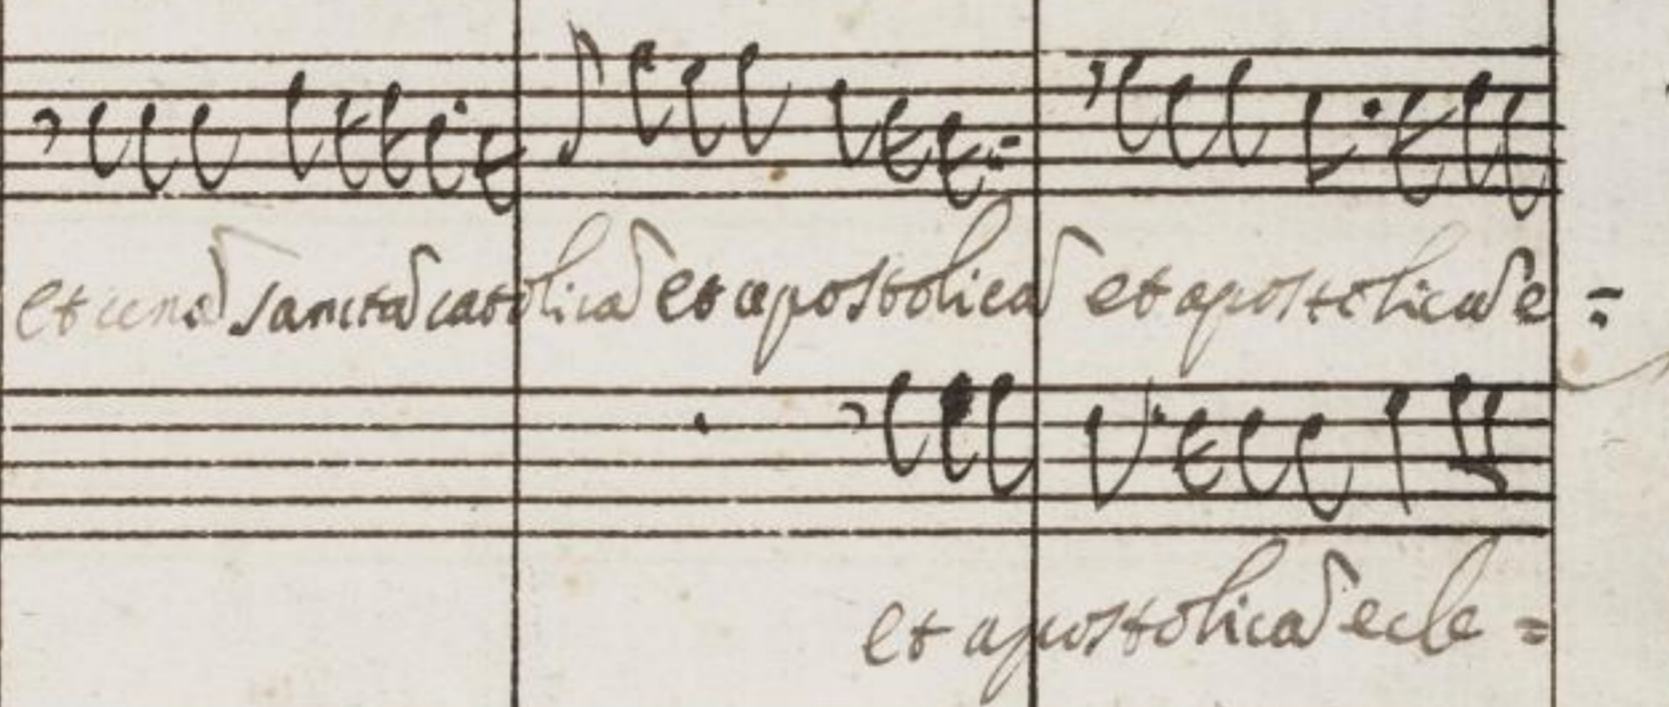 et unam sanctam catolicam et apostolicam et apostolicam e =
et apostolicam ecle =